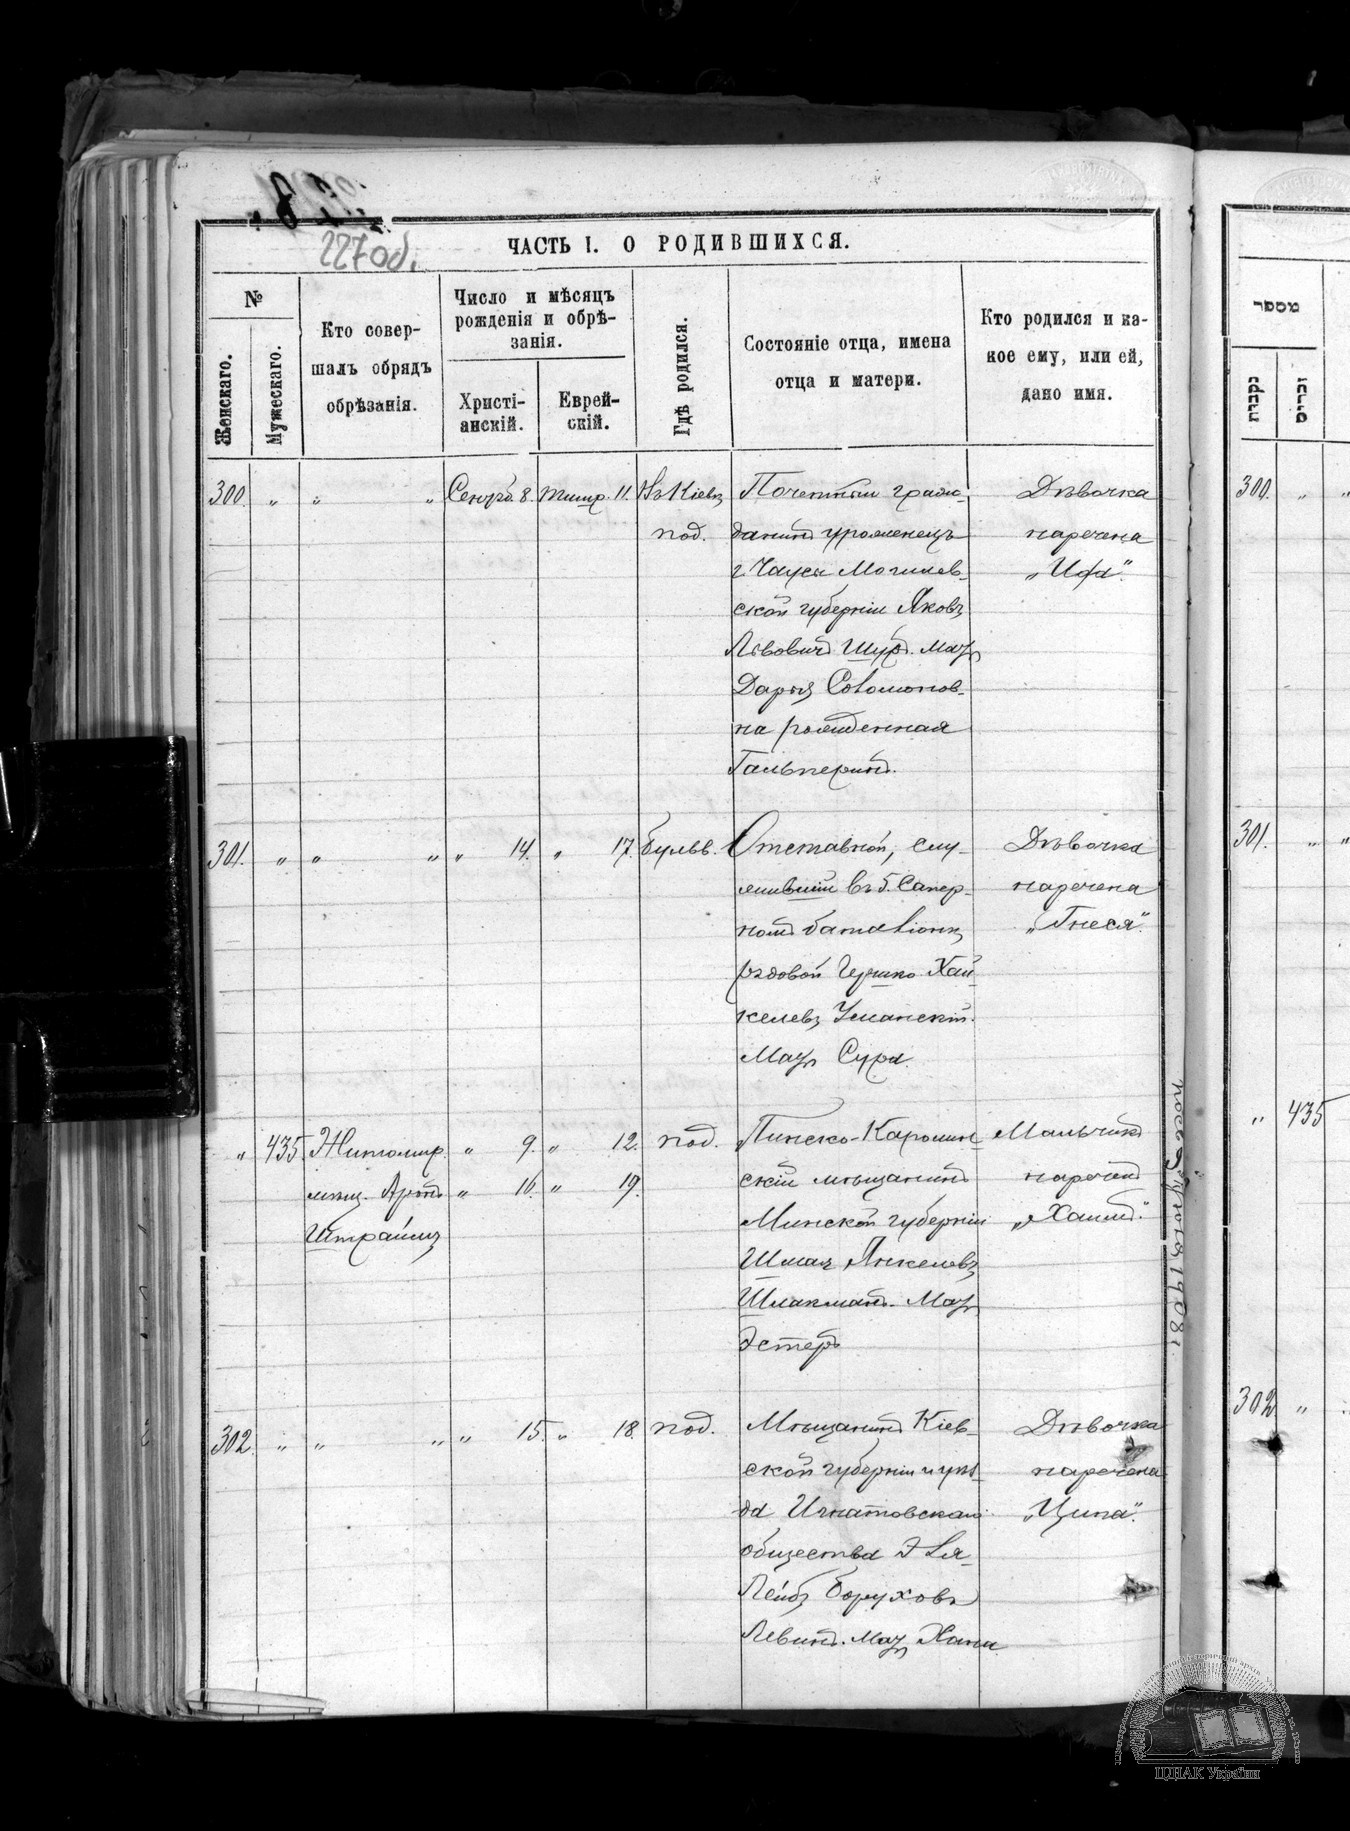 227об.
ЧАСТЬ I. О РОДИВШИХСЯ.
№
Женскаго.
Мужескаго.
Кто совер-
шалъ обрядъ
обрѣзанія.
Число и мѣсяцъ
рожденія и обрѣ-
занія.
Христі-
анскій.
Еврей-
скій.
Гдѣ родился.
Состояніе отца, имена
отца и матери.
Кто родился и ка-
кое ему, или ей,
дано имя.
300 „ „ „ 8. Тишр. 11. Въ Кіевѣ
под.
Почетный граж-
данинъ уроженецъ
г. Чаусы Могилев-
ской губерніи Яковъ
Львовичъ Шуръ. Мать
Дарья Соломонов-
на рожденная
Гальперинъ.
Дѣвочка
наречена
301. „ „ „ „ 14. „ 17. Бульв.
Отставной, слу-
жившій въ 5. Сапер-
номъ баталіонѣ
рядовой Гершко Хай-
келевъ Уманскій.
Мать Сура.
Дѣвочка
наречена
„Гнеся“.
„ 435. Житомир.
мѣщ. Аронъ
Штраймъ
„ 9. „ 12. под.
„ 16. „ 19.
Пинско-Каролин
скій мѣщанинъ
Минской губерніи
Шмая Янкелевъ
Шлакманъ. Мать
Эстеръ
Мальчикъ
нареченъ
„Хаимъ.“
302. „ „ „ „ 15. „ 18. под.
Мѣщанинъ Кіев-
ской губерніи и уѣз-
да Игнатовскаго
общества Эля-
Лейбъ Боруховъ
Левинъ. Мать Хана
Дѣвочка
наречена
„Ципа“.
1908 г.
מספר
נקבות
זכרים
300. „ „
301. „ „
„ 435
302 „
ЦДІАК України